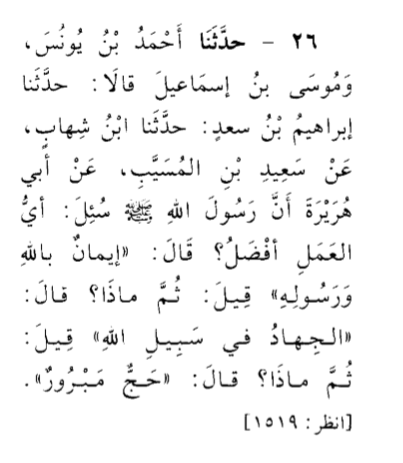 ٢٦ - حدَّثَنَا أَحْمَدُ بْنُ يُونُسَ،
وَمُوسَى بنُ إسمَاعيلَ قالَا: حدَّثَنا
إبراهيمُ بْنُ سعدٍ: حدَّثَنا ابْنُ شِهابٍ،
عَنْ سَعِيدِ بْنِ المُسَيَّبِ، عَنْ أَبي
هُرَيْرَةَ أَنَّ رَسُولَ اللهِ ﷺ سُئِلَ: أيُّ
العَمَلِ أفْضَلُ؟ قَالَ: «إيمانٌ باللهِ
وَرَسُولِهِ» قِيلَ: ثُمَّ ماذَا؟ قالَ:
«الجِهادُ في سَبِيلِ اللهِ» قِيلَ:
ثُمَّ ماذَا؟ قالَ: «حَجٌّ مَبْرُورٌ».
[انظر: ١٥١٩]